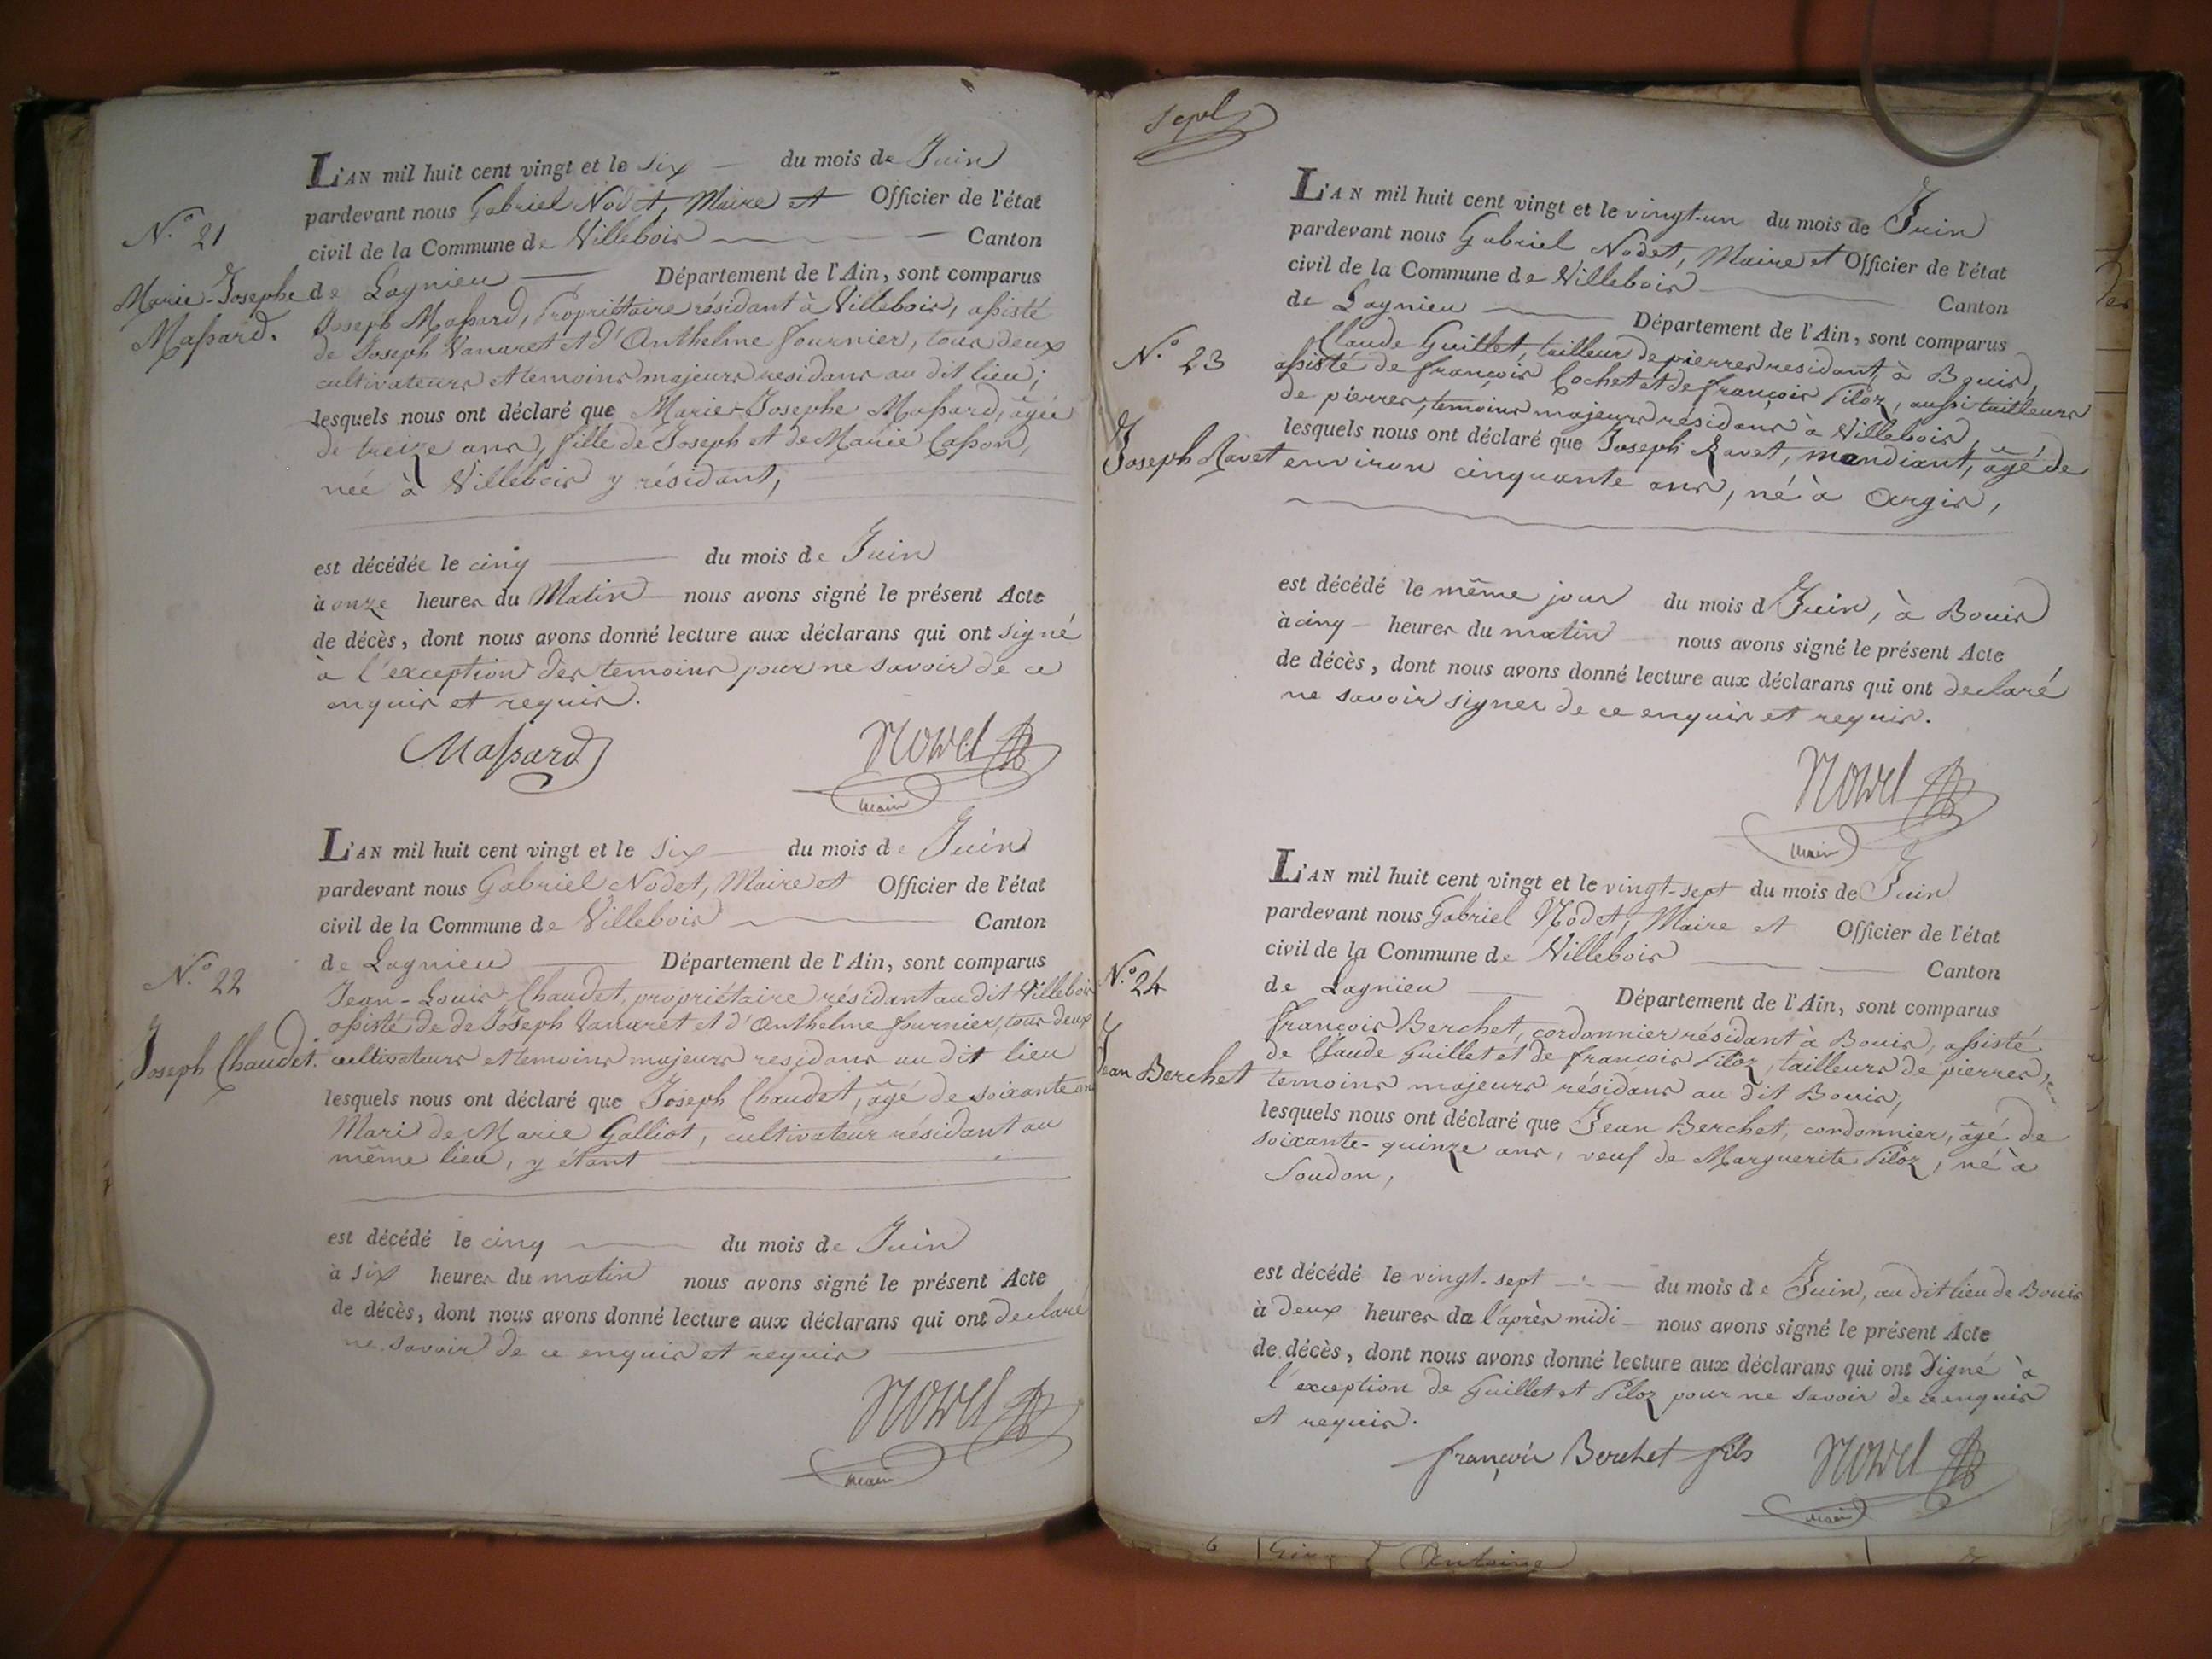 L'AN mil huit cent vingt et le six du mois de Juin
pardevant nous Gabriel Nodet, Maire et Officier de l'état
civil de la Commune de Villebois Canton
de Lagnieu Département de l'Ain, sont comparus
N.º 21
Marie-Josephe
Massard.
Joseph Massard, Propriétaire résidant à Villebois, assisté
de Joseph Vanaret et d'Anthelme fournier, tous deux
cultivateurs et temoins majeurs residans au dit lieu;
lesquels nous ont déclaré que Marie-Josephe Massard, âgée
de treize ans, fille de Joseph et de Marie Casson,
née à Villebois y résidant,
est décédée le cinq du mois de Juin
à onze heures du Matin nous avons signé le présent Acte
de décès, dont nous avons donné lecture aux déclarans qui ont signé
à l'exception des temoins pour ne savoir de ce
enquis et requis.
Massard Nodet
Maire
L'AN mil huit cent vingt et le six du mois de Juin
pardevant nous Gabriel Nodet, Maire et Officier de l'état
civil de la Commune de Villebois Canton
de Lagnieu Département de l'Ain, sont comparus
N.º 22
Joseph Chaudet.
Jean-Louis Chaudet, propriétaire résidant au dit Villebois
assisté de de Joseph Vanaret et d'Anthelme fournier, tous deux
cultivateurs et temoins majeurs residans au dit lieu
lesquels nous ont déclaré que Joseph Chaudet, âgé de soixante ans
Mari de Marie Galliot, cultivateur résidant au
même lieu, y étant
est décédé le cinq du mois de Juin
à six heures du matin nous avons signé le présent Acte
de décès, dont nous avons donné lecture aux déclarans qui ont declaré
ne savoir de ce enquis et requis
Nodet
Maire
sept
L'AN mil huit cent vingt et le vingt-un du mois de Juin
pardevant nous Gabriel Nodet, Maire et Officier de l'état
civil de la Commune de Villebois Canton
de Lagnieu Département de l'Ain, sont comparus
N.º 23
Joseph Ravet
Claude Guillet, tailleur de pierres residant, à Bouis,
assisté de françois Cochet et de françois Piloz, aussi tailleurs
de pierres, temoins majeurs résidans à Villebois,
lesquels nous ont déclaré que Joseph Ravet, mandiant, âgé de
environ cinquante ans, né à Argis,
est décédé le même jour du mois d Juin, à Bouis
à cinq heures du matin nous avons signé le présent Acte
de décès, dont nous avons donné lecture aux déclarans qui ont declaré
ne savoir signer de ce enquis et requis.
Nodet
Maire
L'AN mil huit cent vingt et le vingt-sept du mois de Juin
pardevant nous Gabriel Nodet, Maire et Officier de l'état
civil de la Commune de Villebois Canton
de Lagnieu Département de l'Ain, sont comparus
N.º 24
Jean Berchet
françois Berchet, cordonnier résidant à Bouis, assisté
de Claude Guillet et de françois Piloz, tailleurs de pierres,
temoins majeurs résidans au dit Bouis,
lesquels nous ont déclaré que Jean Berchet, cordonnier, âgé de
soixante-quinze ans, veuf de Marguerite Piloz, né à
Soudon,
est décédé le vingt-sept du mois de Juin, au dit lieu de Bouis
à deux heures de l'après midi nous avons signé le présent Acte
de décès, dont nous avons donné lecture aux déclarans qui ont signé à
l'exception de Guillet et Piloz pour ne savoir de ce enquis
et requis.
françois Berchet fils Nodet
Maire
6 Antoine